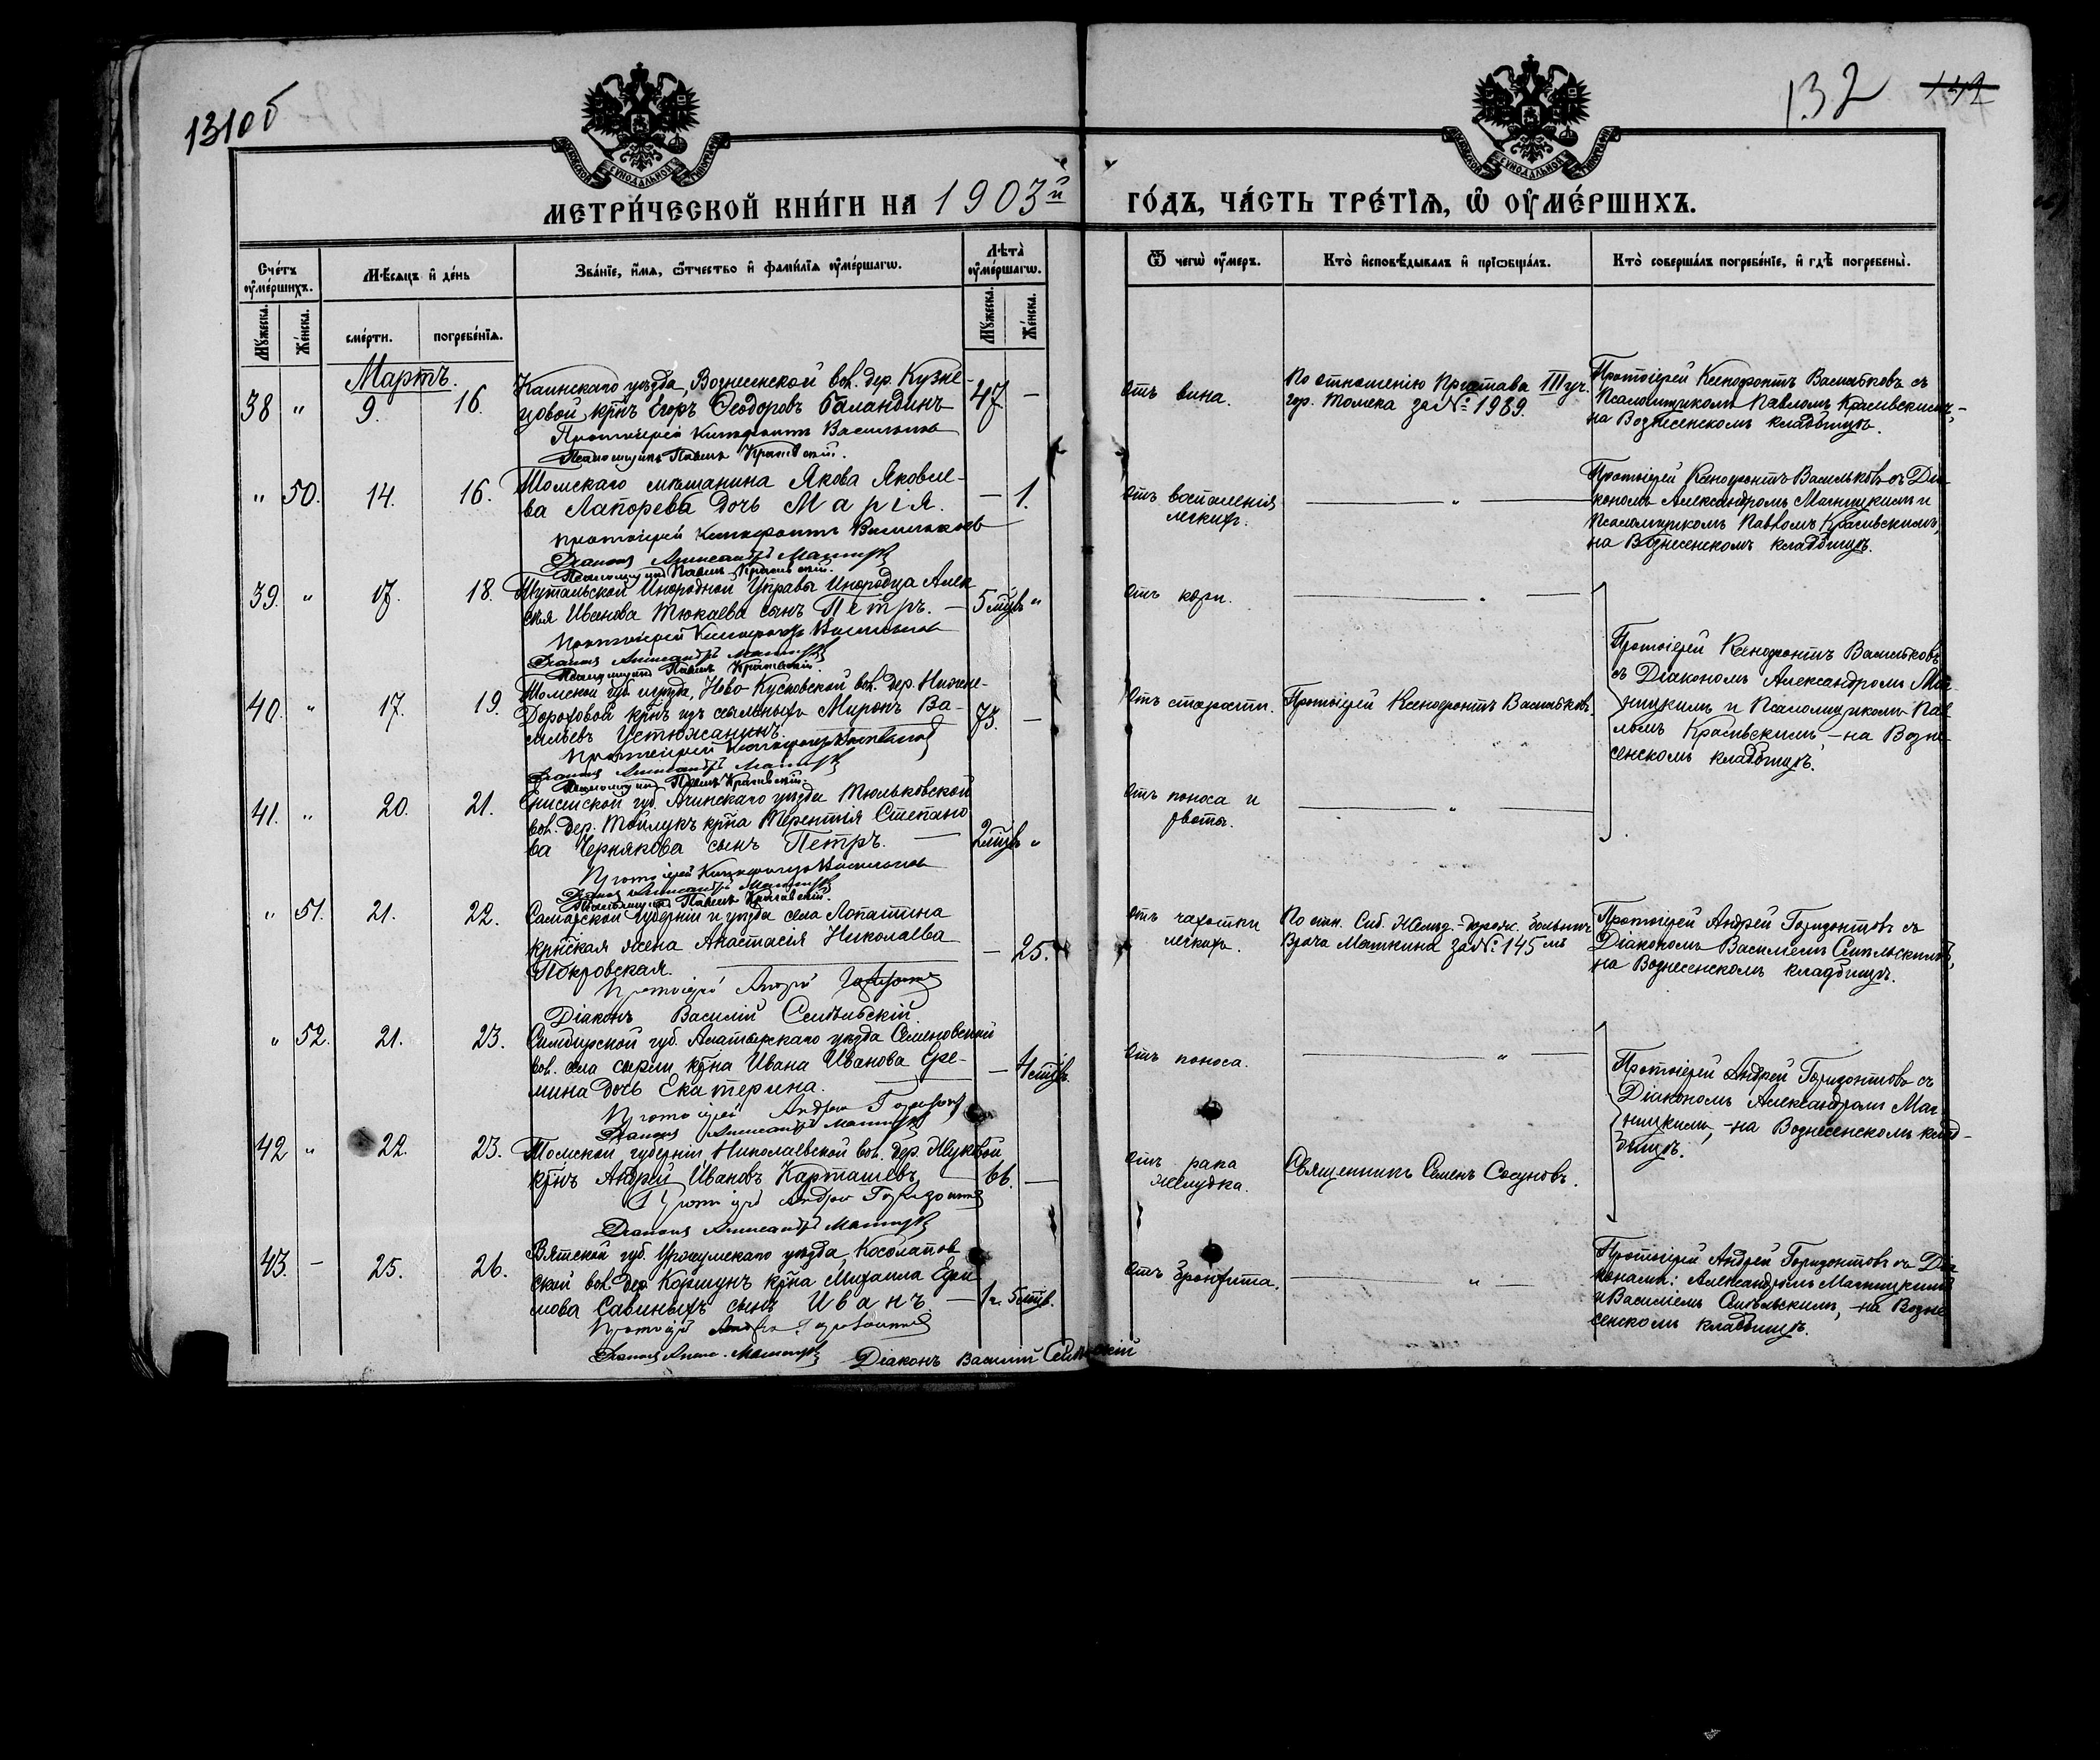 131об
132
142
МОСКОВСКОЙ СУНОДАЛЬНОЙ ТИПОГРАФІИ
МОСКОВСКОЙ СУНОДАЛЬНОЙ ТИПОГРАФІИ
МЕТРИ́ЧЕСКОЙ КНИ́ГИ НА 1903й
ГО́ДЪ, ЧА́СТЬ ТРЕ́ТІѦ, Ѡ ОУМЕ́РШИХЪ.
Сче́тъ оуме́ршихъ.
Мѣсяцъ и де́нь
Зва́ніе, и́мя, о́тчество и фами́лія оуме́ршагѡ.
Лѣта̀ оуме́ршагѡ.
Мꙋ́жеска.
Же́нска.
сме́рти.
погребе́нія.
Мꙋ́жеска.
Же́нска.
Ѿ чегѡ̀ оу́меръ.
Кто̀ исповѣ́дывалъ и пріѡбща́лъ.
Кто̀ соверша́лъ погребе́ніе, и гдѣ̀ погребены̀.
Мартъ.
38 " 9. 16.
Каинскаго уѣзда, Вознесенской вол. дер. Кузне-
цовой крнъ Егоръ Ѳеодоровъ Баландинъ 47 —
Протоіерей Ксенофонтъ Васильковъ
Псаломщикъ Павелъ Красивскій.
Отъ вина.
По отношенію Пристава III уч.
гор. Томска за № 1989.
Протоіерей Ксенофонтъ Васильковъ съ
Псаломщикомъ Павломъ Красивскимъ,-
на Вознесенскомъ кладбищѣ.
" 50. 14. 16.
Томскаго мѣщанина Якова Яковле-
ва Лапорева дочь Марія. — 1.
Протоіерей Ксенофонтъ Васильковъ
Діаконъ Александръ Магницкій
Псаломщикъ Павелъ Красивскій.
Отъ воспаленія
легкихъ.
— " —
Протоіерей Ксенофонтъ Васильковъ съ Діа-
кономъ Александромъ Магницкимъ и
Псаломщикомъ Павломъ Красивскимъ,
на Вознесенскомъ кладбищѣ.
39. " 17. 18.
Шутальской Инородной Управы Инородца Алек
сѣя Иванова Тюкаева сынъ Петръ. — 5 мцвъ "
Протоіерей Ксенофонтъ Васильковъ
Діаконъ Александръ Магницкій
Псаломщикъ Павелъ Красивскій.
Отъ кори.
— " —
40. " 17. 19.
Томской губ. и уѣзда, Ново-Кусковской вол. дер. Нижне-
Дороховой крнъ изъ ссыльныхъ Миронъ Ва-
сильевъ Устюжанинъ. 75. —
Протоіерей Ксенофонтъ Васильковъ
Діаконъ Александръ Магницкій
Псаломщикъ Павелъ Красивскій.
Отъ старости.
Протоіерей Ксенофонтъ Васильковъ.
Протоіерей Ксенофонтъ Васильковъ
съ Діакономъ Александромъ Маг-
ницкимъ и Псаломщикомъ Пав
ломъ Красивскимъ,-на Возне-
сенскомъ кладбищѣ.
41. " 20. 21.
Енисейской губ. Ачинскаго уѣзда Тюльковской
вол. дер. Тойлукъ крна Терентія Степано
ва Чернякова сынъ Петръ. — 2 мцвъ "
Протоіерей Ксенофонтъ Васильковъ
Діаконъ Александръ Магницкій
Псаломщикъ Павелъ Красивскій.
Отъ поноса и
рвоты.
— " —
" 51. 21. 22.
Самарской губерніи и уѣзда села Лопатина
крнская жена Анастасія Николаева — 25.
Покровская.
Протоіерей Андрей Горизонтовъ
Діаконъ Василій Сельскій
Отъ чахотки
легкихъ.
По отн. Сиб. Желѣз.-дорож. больниц
Врача Машкина за № 145 мъ
Протоіерей Андрей Горизонтовъ съ
Діакономъ Василіемъ Сельскимъ,
на Вознесенскомъ кладбищѣ.
" 52. 21. 23.
Симбирской губ. Алатырскаго уѣзда Семеновской
вол. села сырли крна Ивана Иванова Ере-
мина дочь Екатерина. — 4 мцв.
Протоіерей Андрей Горизонтовъ
Діаконъ Александръ Магницкій
Отъ поноса.
— " —
Протоіерей Андрей Горизонтовъ съ
Діакономъ Александромъ Маг-
ницкимъ,-на Вознесенскомъ клад-
бищѣ.
42 " 22. 23.
Томской губерніи, Николаевской вол. дер. Жуковой
крнъ Андрей Ивановъ Карташевъ. 66. —
Протоіерей Андрей Горизонтовъ
Діаконъ Александръ Магницкій
Отъ рака
желудка.
Священникъ Семенъ Сосуновъ.
43. — 25. 26.
Вятской губ. Уржумскаго уѣзда, Косолапов
ской вол. дер. Коршунъ крна Михаила Ефи
мова Савиныхъ сынъ Иванъ. — 1 г. 5 мцв.
Протоіерей Андрей Горизонтовъ
Діаконъ Алекс. Магницкій Діаконъ Василій Сельскій
Отъ бронхита.
— " —
Протоіерей Андрей Горизонтовъ съ Діа
конами: Александромъ Магницкимъ
и Василіемъ Сельскимъ,-на Возне
сенскомъ кладбищѣ.